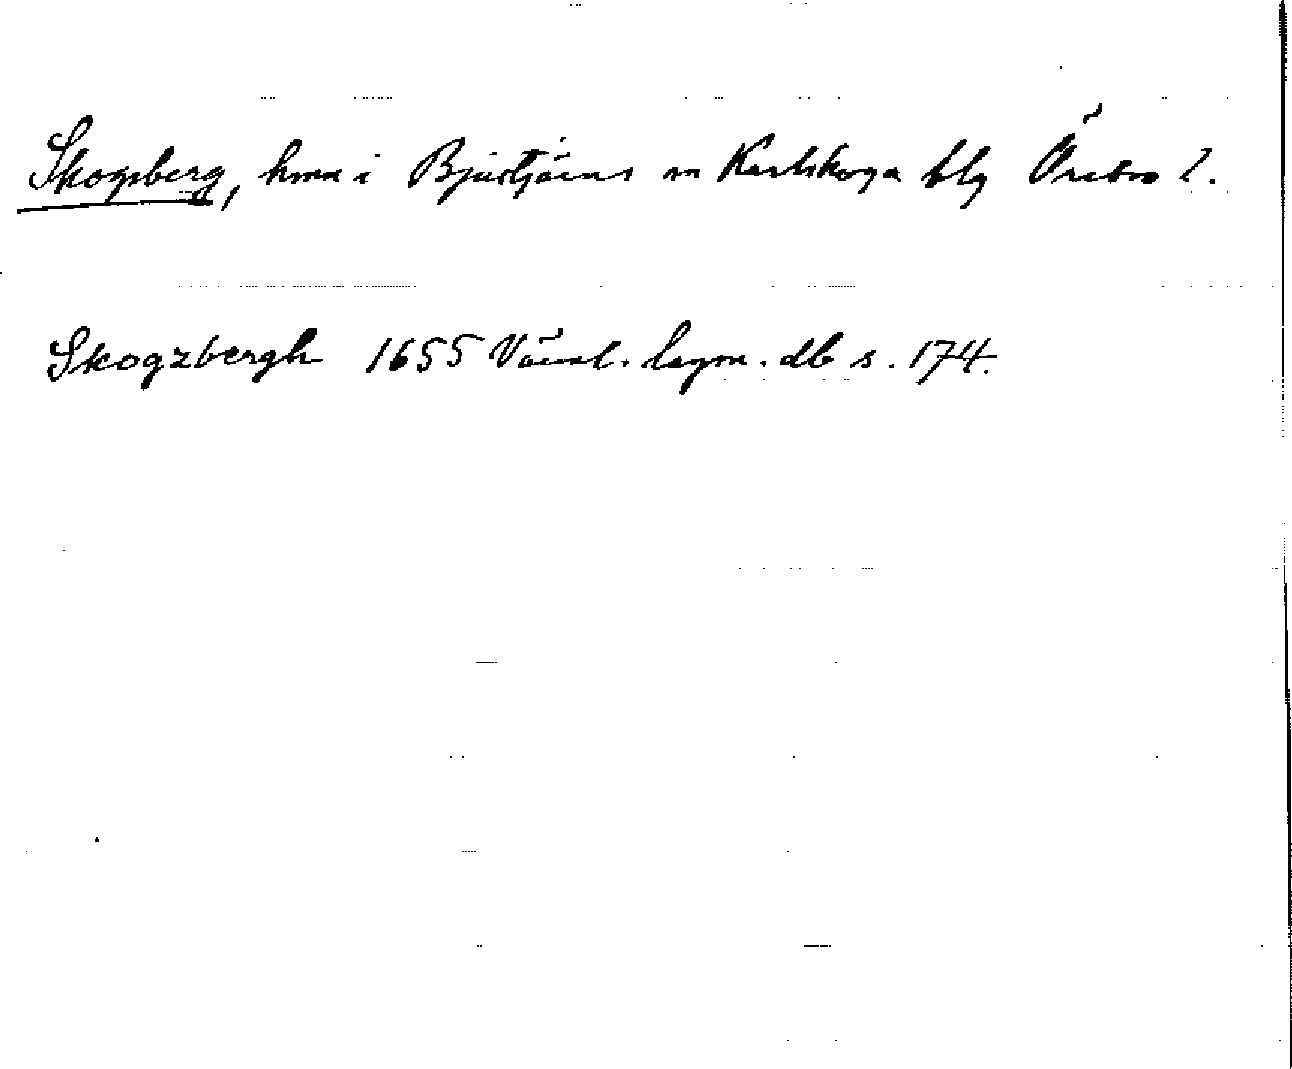 Skogsberg, hmn i Bjurtjärns sn Karlskoga blg Örebro l.
Skogzbergh 1655 Värml. lagm. db s. 174.